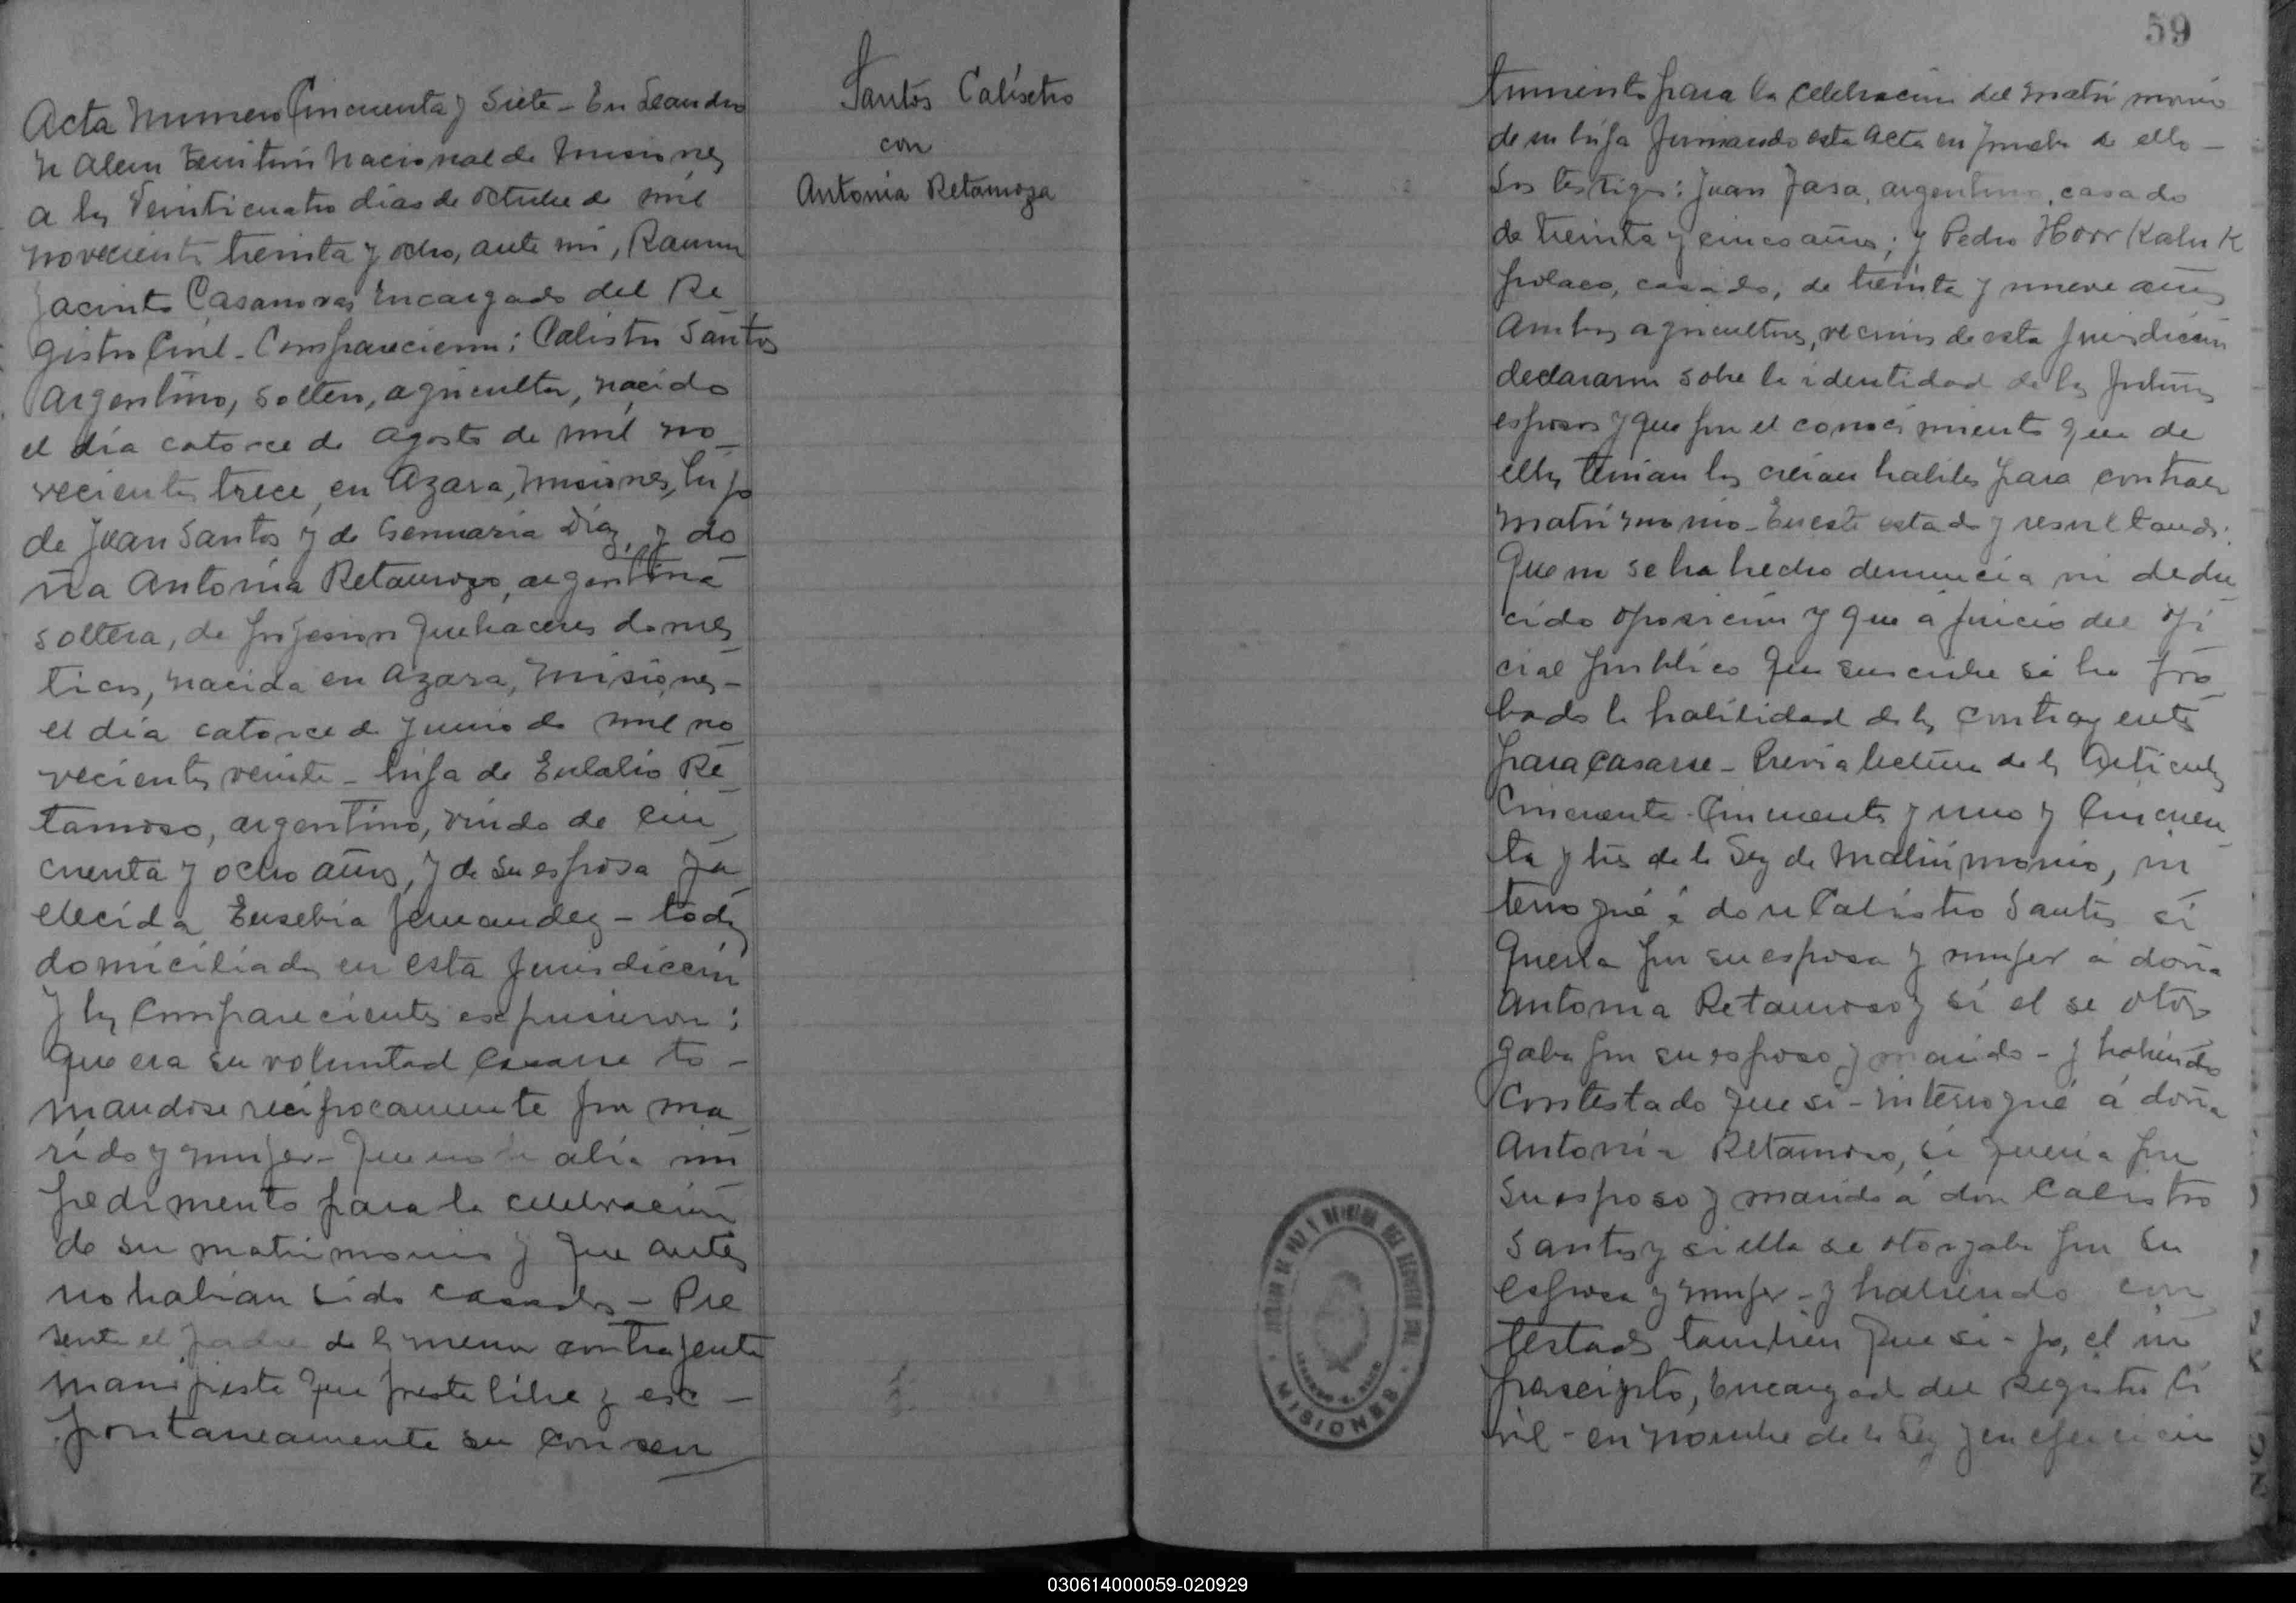 Acta Numero Cincuenta y Siete - En Leandro
N Alem Territorio Nacional de Misiones
a los Veinticuatro dias de octubre de mil
novecientos treinta y ocho, ante mi, Ramon
Jacinto Casanovas Encargado del Re_
gistro Civil - Comparecieron: Calistro Santos
Argentino, soltero, agricultor, nacido
el día catorce de agosto de mil no_
vecientos trece, en Azara, Misiones, hijo
de Juan Santos y de Genuaria Díaz, y do_
ña Antonia Retamozo, argentina
soltera, de profesion quehaceres domes_
ticos, nacida en Azara, Misiones -
el día catorce de Junio de mil no_
vecientos veinte - hija de Eulalio Re_
tamoso, argentino, viudo de cin_
cuenta y ocho años, y de su esposa fa_
llecida Eusebia Fernandez - todos
domiciliados en esta Jurisdiccion
y los Comparecientes expusieron:
Que era su voluntad casarse to -
mandose recíprocamente por ma_
rido y mujer - Que no había im_
pedimento para la celebracion
de su matrimonio y que antes
no habian sido casados - Pre_
sente el padre de la menor contrayente
manifiesta que presta libre y ex -
pontaneamente su consen_
Santos Calistro
con
Antonia Retamoza
59
timiento para la celebracion del matrimonio
de su hija firmando esta acta en prueba de ello -
Los testigos: Juan Jasa, argentino, casado
de treinta y cinco años; y Pedro Horr Kaluk
polaco, casado, de treinta y nueve años
Ambos agricultores, vecinos de esta Jurisdiccion
declararon sobre la identidad de los futuros
esposos y que por el conocimiento que de
ellos tenian los creian habiles para contraer
matrimonio - En este estado y resultando:
Que no se ha hecho denuncia ni dedu_
cido oposicion y que á juicio del ofi_
cial publico que suscribe se ha pro_
bado la habilidad de los contrayentes
para casarse - Previa lectura de los Articulos
Cincuenta - Cincuenta y uno y Cincuen_
ta y tres de la Ley de Matrimonio, in_
terrogué á don Calistro Santos si
queria por su esposa y mujer á doña
Antonia Retamoso y si el se otor_
gaba por su esposo y marido - y habiendo
Contestado que si - interrogué á doña
Antonia Retamoso, si queria por
su esposo y marido á don Calistro
Santos y si ella se otorgaba por su
esposa y mujer - y habiendo con_
testado tambien que si - yo, el in_
frascripto, Encargado del Registro Ci_
vil - en nombre de la Ley y en ejercicio
JUZGADO DE PAZ Y OFICINA DEL REGISTRO CIVIL
LEANDRO N. ALEM
MISIONES
030614000059-020929